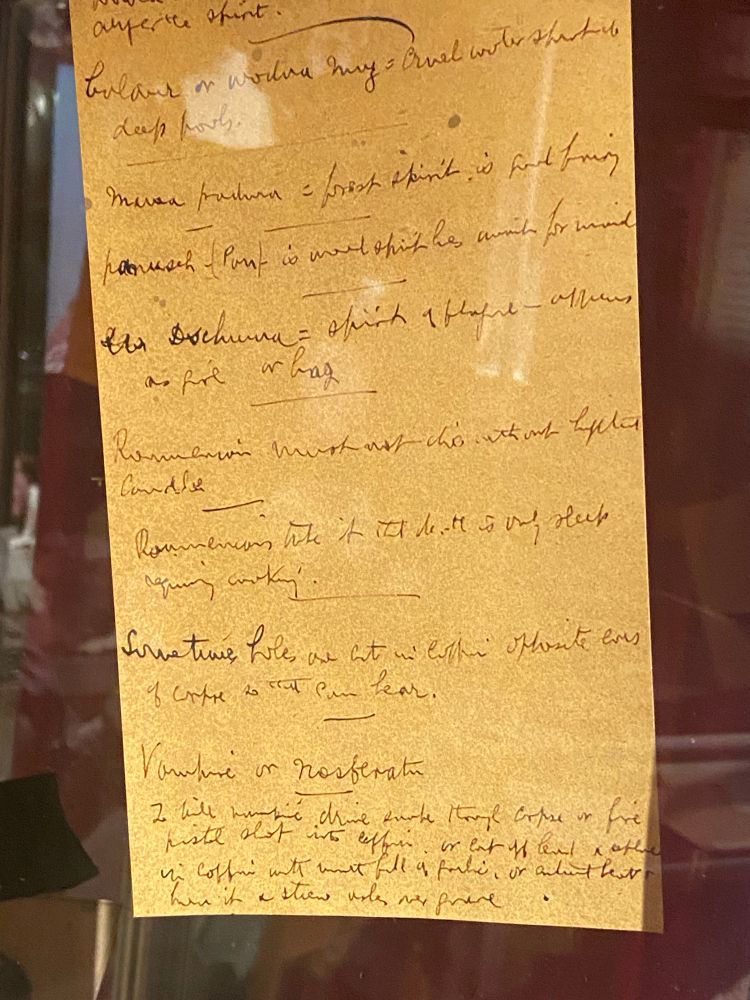 spirit.
Balaur or wodna muz = cruel water spirit in
deep pools.
mama padura = forest spirit. is good fairy
panusch (Pan) is wood spirit lies for maid
Dschuma = spirit of plague - appears
as girl or hag
Roumenian must not die without lighted
candle
Roumenians it that death is only sleep
requiring
Sometimes holes are cut in coffin opposite ears
of corpse so that can hear.
Vampire or nosferatu
To kill vampire drive stake through corpse or fire
pistol shot into coffin. or cut off head &
in coffin with mouth full of garlic, or heart &
burn it & strew ashes over grave